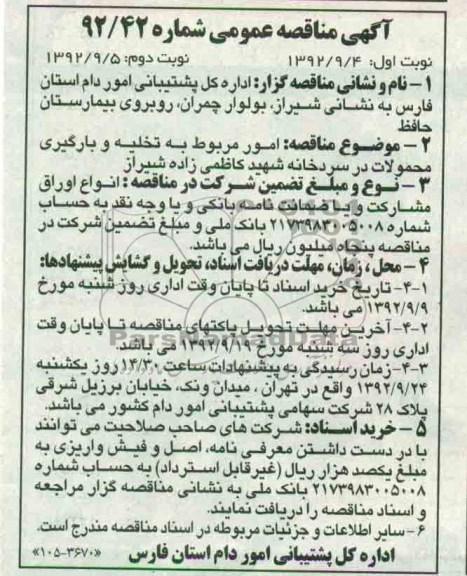 آگهی مناقصه عمومی شماره ۹۲/۴۲
نوبت اول: ۱۳۹۲/۹/۴ نوبت دوم: ۱۳۹۲/۹/۵
۱- نام و نشانی مناقصه گزار: اداره کل پشتیبانی امور دام استان
فارس به نشانی شیراز، بولوار چمران، روبروی بیمارستان
حافظ
۲- موضوع مناقصه: امور مربوط به تخلیه و بارگیری
محمولات در سردخانه شهید کاظمی زاده شیراز
۳- نوع و مبلغ تضمین شرکت در مناقصه: انواع اوراق
مشارکت و یا ضمانت نامه بانکی و یا وجه نقد به حساب
شماره ۲۱۷۳۹۸۳۰۰۵۰۰۸ بانک ملی و مبلغ تضمین شرکت در
مناقصه پنجاه میلیون ریال می باشد.
۴- محل، زمان، مهلت دریافت اسناد، تحویل و گشایش پیشنهادها:
۴-۱- تاریخ خرید اسناد تا پایان وقت اداری روز شنبه مورخ
۱۳۹۲/۹/۹ می باشد.
۴-۲- آخرین مهلت تحویل پاکتهای مناقصه تا پایان وقت
اداری روز سه شنبه مورخ ۱۳۹۲/۹/۱۹ می باشد.
۴-۳- زمان رسیدگی به پیشنهادات ساعت ۱۴/۳۰ روز یکشنبه
۱۳۹۲/۹/۲۴ واقع در تهران، میدان ونک، خیابان برزیل شرقی
پلاک ۲۸ شرکت سهامی پشتیبانی امور دام کشور می باشد.
۵- خرید اسناد: شرکت های صاحب صلاحیت می توانند
با در دست داشتن معرفی نامه، اصل و فیش واریزی به
مبلغ یکصد هزار ریال (غیرقابل استرداد) به حساب شماره
۲۱۷۳۹۸۳۰۰۵۰۰۸ بانک ملی به نشانی مناقصه گزار مراجعه
و اسناد مناقصه را دریافت نمایند.
۶- سایر اطلاعات و جزئیات مربوطه در اسناد مناقصه مندرج است.
اداره کل پشتیبانی امور دام استان فارس «۱۰۵-۳۶۷۰»
ParsNamadData